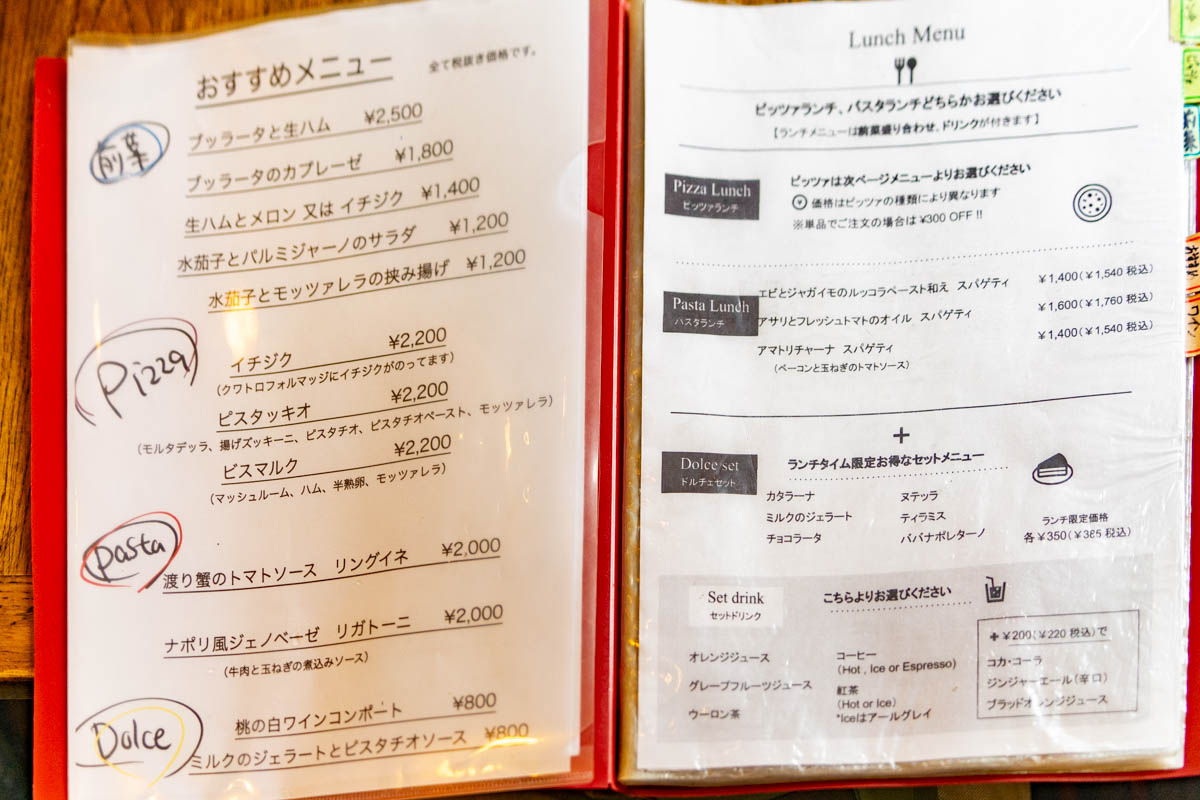 おすすめメニュー
全て税抜き価格です。
前菜
ブッラータと生ハム ¥2,500
ブッラータのカプレーゼ ¥1,800
生ハムとメロン 又は イチジク ¥1,400
水茄子とパルミジャーノのサラダ ¥1,200
水茄子とモッツァレラの挟み揚げ ¥1,200
Pizza
イチジク ¥2,200
(クワトロフォルマッジにイチジクがのってます)
ピスタッキオ ¥2,200
(モルタデッラ、揚げズッキーニ、ピスタチオ、ピスタチオペースト、モッツァレラ)
ビスマルク ¥2,200
(マッシュルーム、ハム、半熟卵、モッツァレラ)
pasta
渡り蟹のトマトソース リングイネ ¥2,000
ナポリ風ジェノベーゼ リガトーニ ¥2,000
(牛肉と玉ねぎの煮込みソース)
Dolce
桃の白ワインコンポート ¥800
ミルクのジェラートとピスタチオソース ¥800
Lunch Menu
ピッツァランチ、パスタランチどちらかお選びください
【ランチメニューは前菜盛り合わせ、ドリンクが付きます】
Pizza Lunch
ピッツァランチ
ピッツァは次ページメニューよりお選びください
¥ 価格はピッツァの種類により異なります
※単品でご注文の場合は ¥300 OFF !!
Pasta Lunch
パスタランチ
エビとジャガイモのルッコラペースト和え スパゲティ ¥1,400(¥1,540 税込)
アサリとフレッシュトマトのオイル スパゲティ ¥1,600(¥1,760 税込)
アマトリチャーナ スパゲティ ¥1,400(¥1,540 税込)
(ベーコンと玉ねぎのトマトソース)
+
Dolce set
ドルチェセット
ランチタイム限定お得なセットメニュー
カタラーナ ヌテッラ
ミルクのジェラート ティラミス
チョコラータ ババナポレターノ
ランチ限定価格
各¥350(¥385 税込)
Set drink
セットドリンク
こちらよりお選びください
オレンジジュース
グレープフルーツジュース
ウーロン茶
コーヒー
(Hot , Ice or Espresso)
紅茶
(Hot or Ice)
*Iceはアールグレイ
+ ¥200(¥220 税込)で
コカ・コーラ
ジンジャーエール(辛口)
ブラッドオレンジジュース
前菜
ワイン